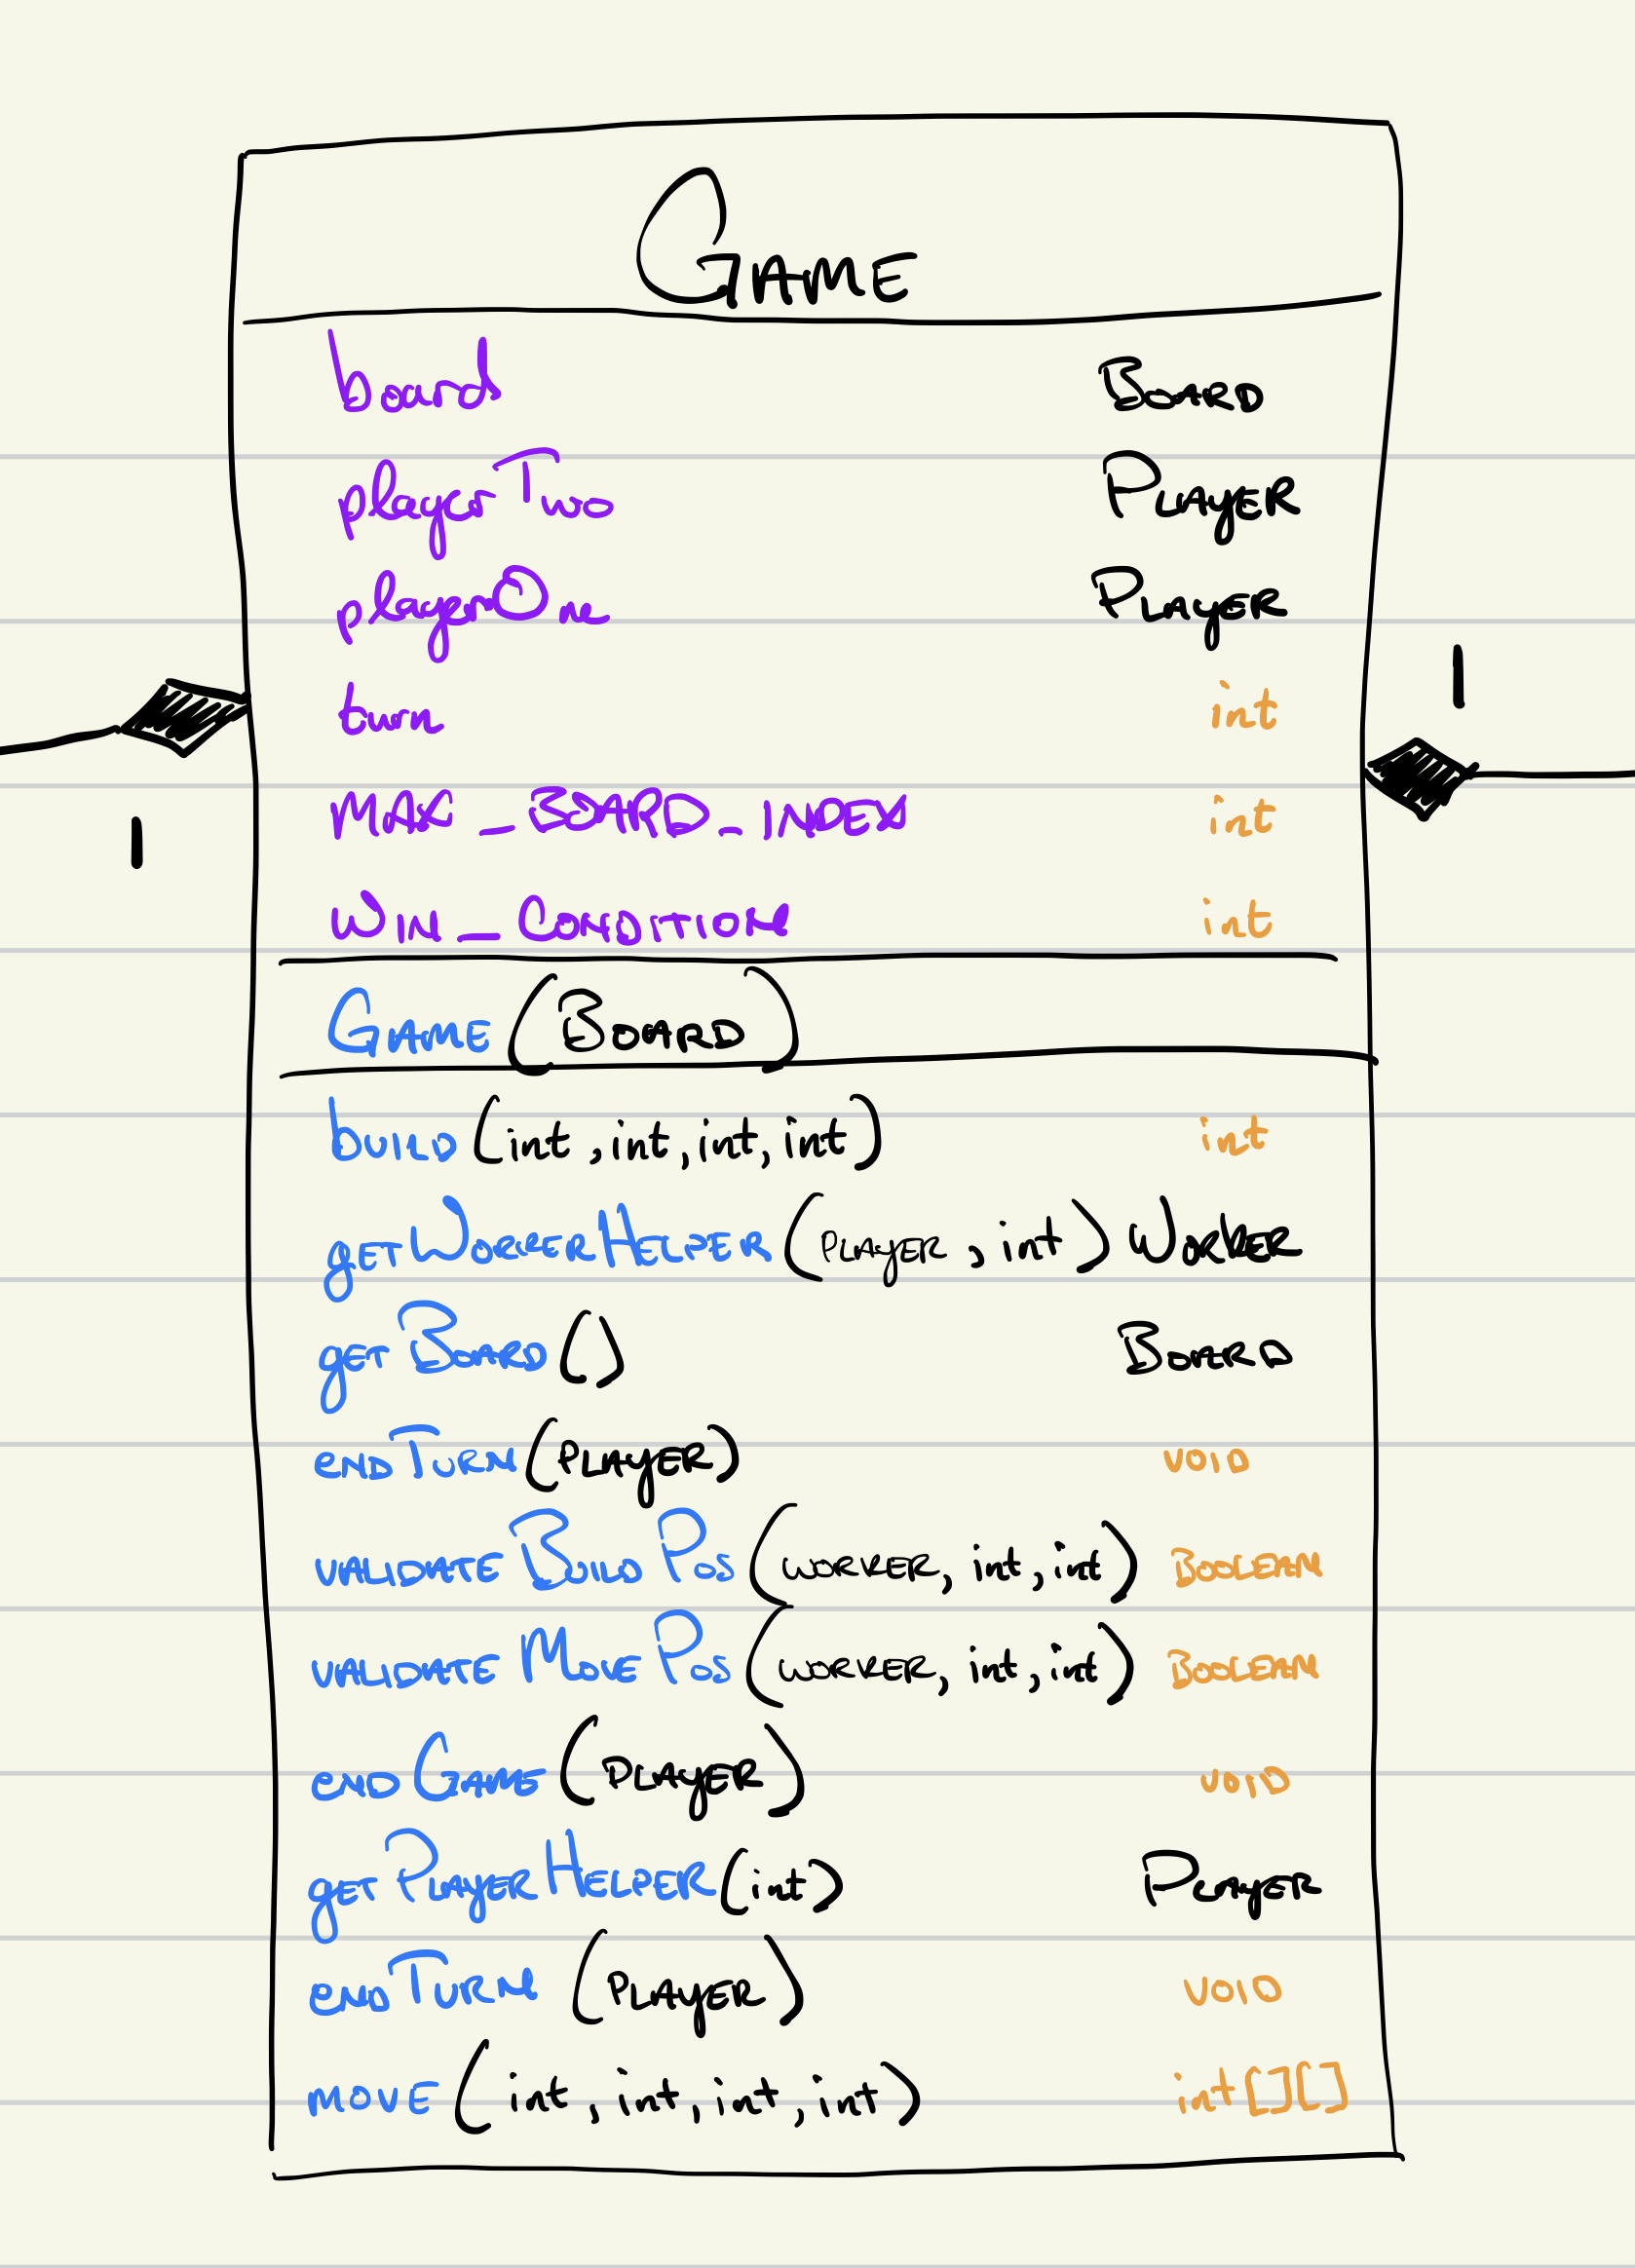 GAME
board Board
playerTwo Player
playerOne Player
turn int
1
MAX_BOARD_INDEX int
1
WIN_CONDITION int
GAME (BOARD)
build (int, int, int, int) int
getWorkerHelper (PLAYER, int) Worker
getBoard () Board
endTurn (PLAYER) void
validateBuildPos (worker, int, int) Boolean
validateMovePos (worker, int, int) Boolean
endGame (PLAYER) void
getPlayerHelper (int) Player
endTurn (PLAYER) void
move (int, int, int, int) int[][]